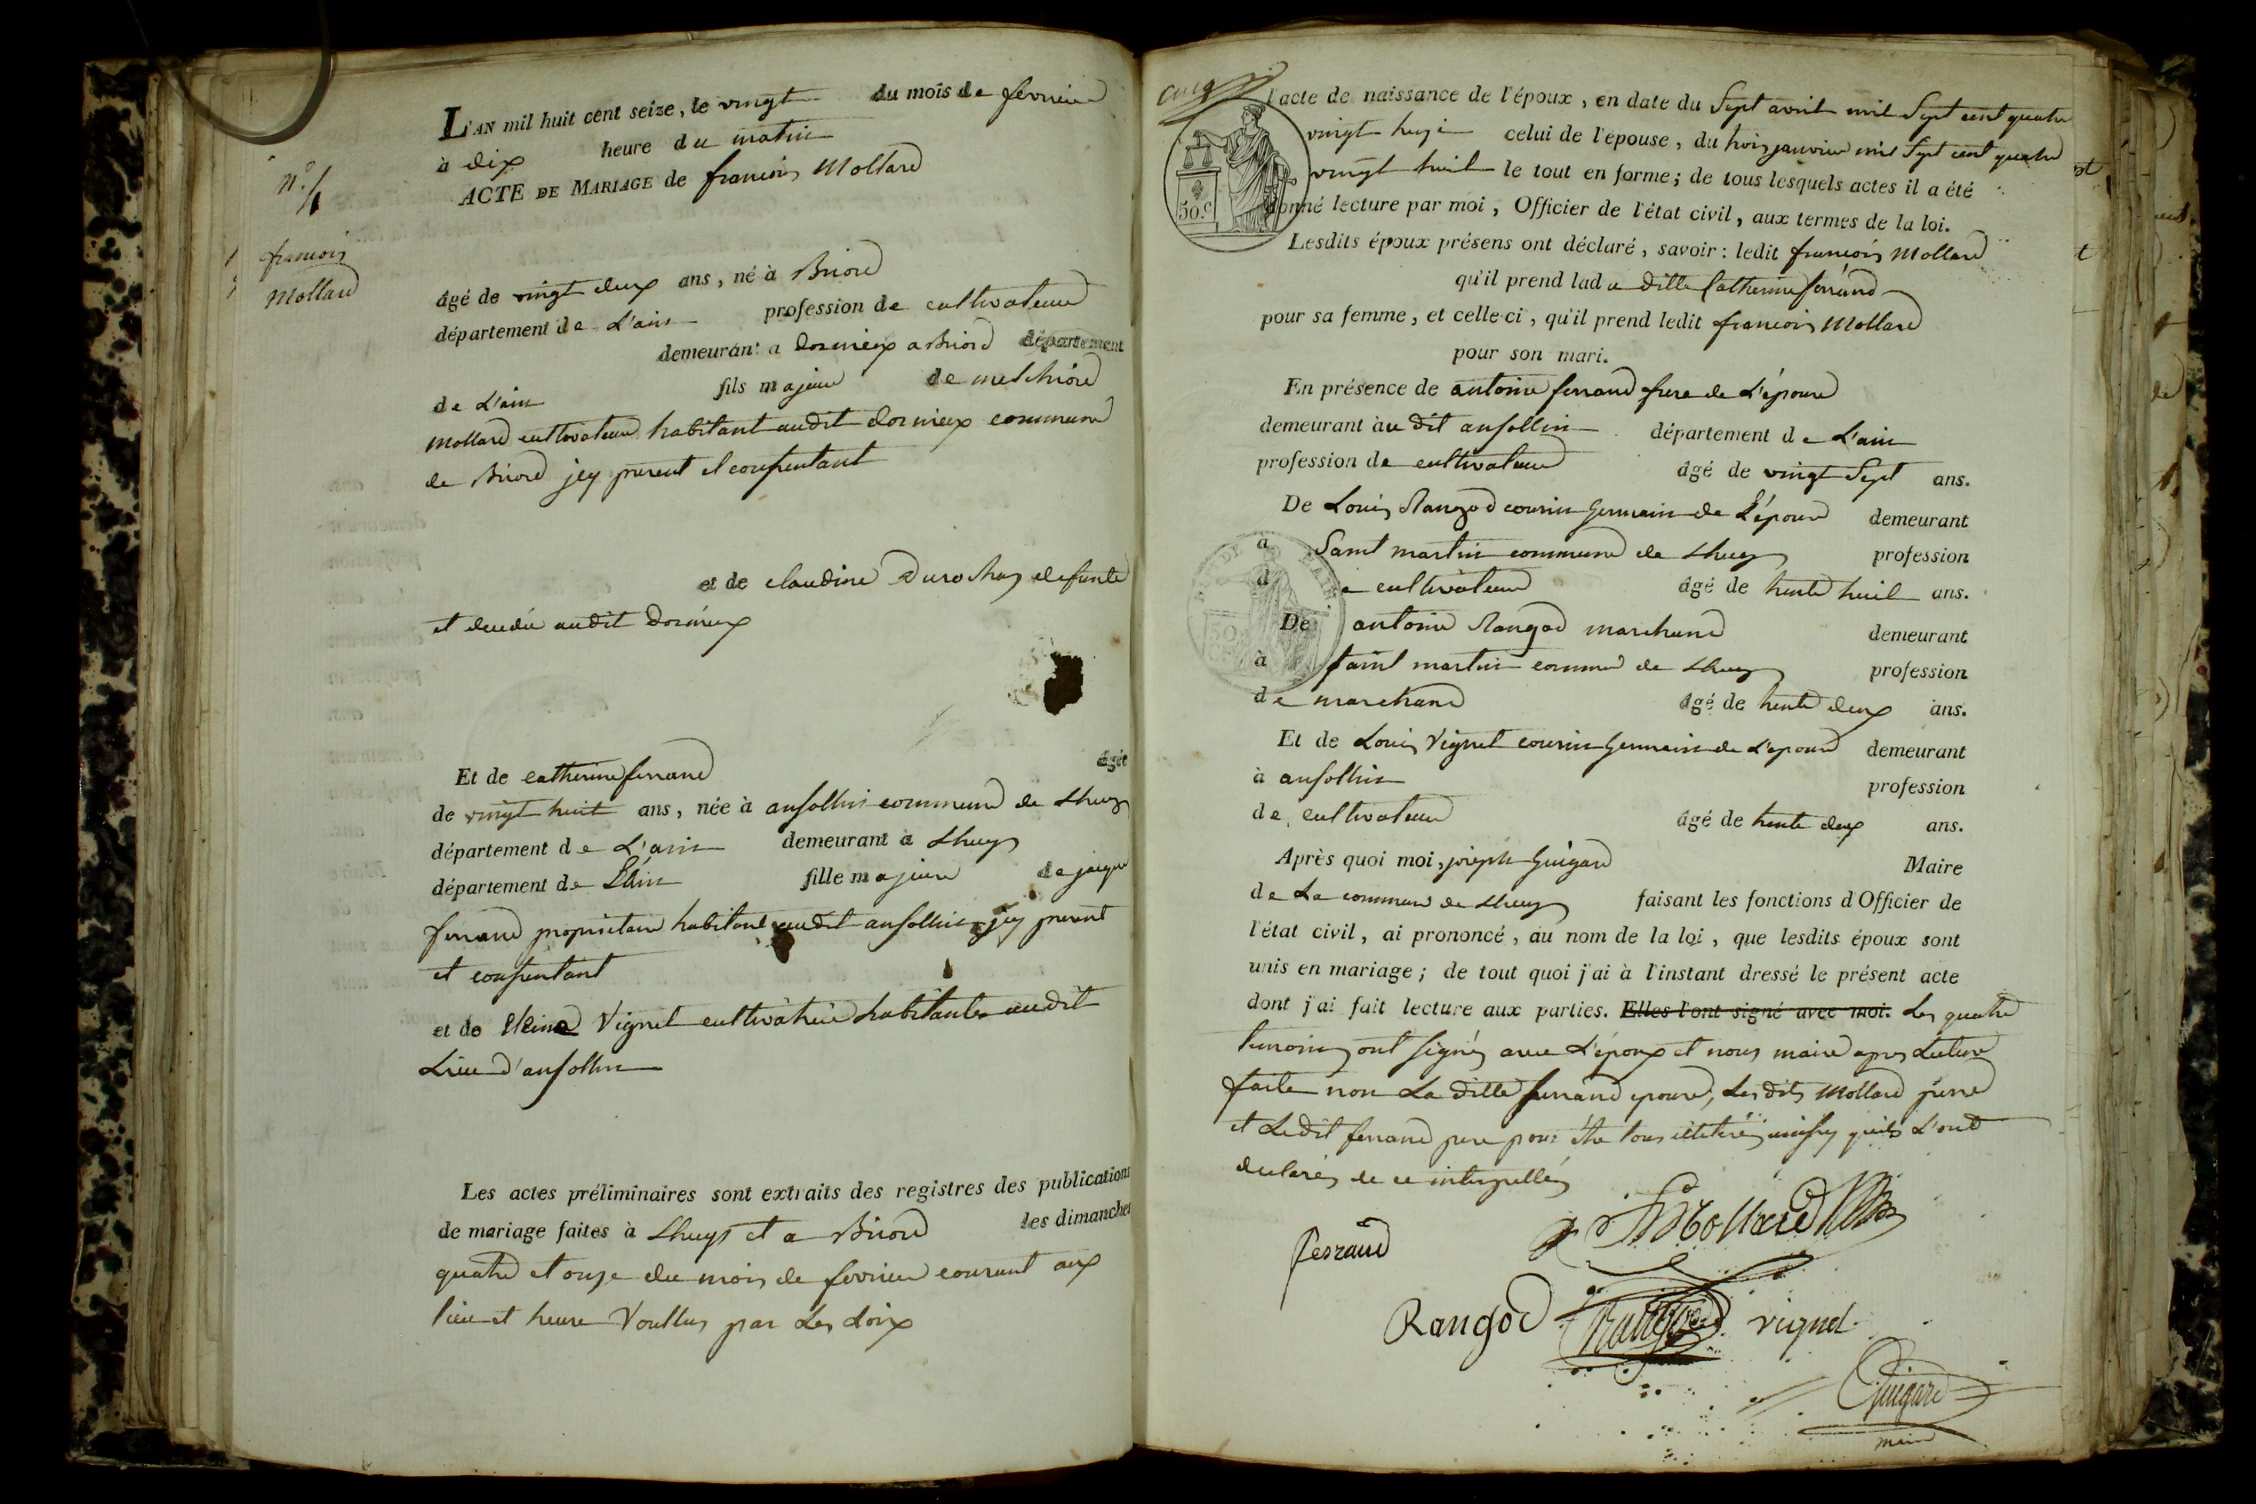 L'AN mil huit cent seize, le vingt du mois de fevrier
à dix heure du matin
ACTE DE MARIAGE de francois Mollard
N.°
francois
Mollard
âgé de vingt deux ans, né à Briord
département de L'ain profession de cultivateur
demeurant a dornieux a Briord département
de L'ain fils majeur de melchiord
mollard cultivateur habitant audit dornieux commune
de Briord jcy present et consentant
et de claudine Durochas defunte
et decedée audit Dornieux
Et de catherine ferrand âgée
de vingt huit ans, née à ansollin commune de Lhuys
département de L'ain demeurant à Lhuys
département de L'ain fille majeure de jacque
ferrand proprietaire habitant audit ansollin jcy present
et consentant
et de Vignet cultivatrice habitante audit
Lieu d'ansollin
Les actes préliminaires sont extraits des registres des publications
de mariage faites à Lhuys et a Briord les dimanches
quatre et onze du mois de fevrier courant aux
lieu et heure Voullus par Les Loix
l'acte de naissance de l'époux, en date du Sept avril mil Sept cent quatre
vingt treize celui de l'épouse, du trois janvier mil Sept cent quatre
vingt huit le tout en forme; de tous lesquels actes il a été
donné lecture par moi, Officier de l'état civil, aux termes de la loi.
50.c
Lesdits époux présens ont déclaré, savoir: ledit francois Mollard
qu'il prend lad e ditte Catherine ferrand
pour sa femme, et celle-ci, qu'il prend ledit francois Mollard
pour son mari.
En présence de antoine ferrand frere de L'épouse
demeurant àu dit ansollin département de L'ain
profession de cultivateur âgé de vingt Sept ans.
De Louis Rangod cousin Germain de L'épouse demeurant
a Saint martin commune de Lhuys profession
de cultivateur âgé de trente huit ans.
De antoine Rangod marchand demeurant
à saint martin commune de Lhuys profession
de marchand âgé de trente deux ans.
Et de Louis Vignet cousin Germain de L'epouse demeurant
à ansollin profession
de cultivateur âgé de trente deux ans.
Après quoi moi, joseph Guigard Maire
de La commune de Lhuys faisant les fonctions d'Officier de
l'état civil, ai prononcé, au nom de la loi, que lesdits époux sont
unis en mariage; de tout quoi j'ai à l'instant dressé le présent acte
dont j'ai fait lecture aux parties. Elles l'ont signé avec moi. Les quatre
temoins ont signés avec L'époux et nous maire apres Lecture
faite non La ditte ferrand epouse, Lesdits Mollard perre
et Ledit ferrand pere pour être tous illetirés ainsy quils L'ont
declarés de ce interpellés
ferraud
Mollard
Rangod Rangod vignet
Guigard
maire